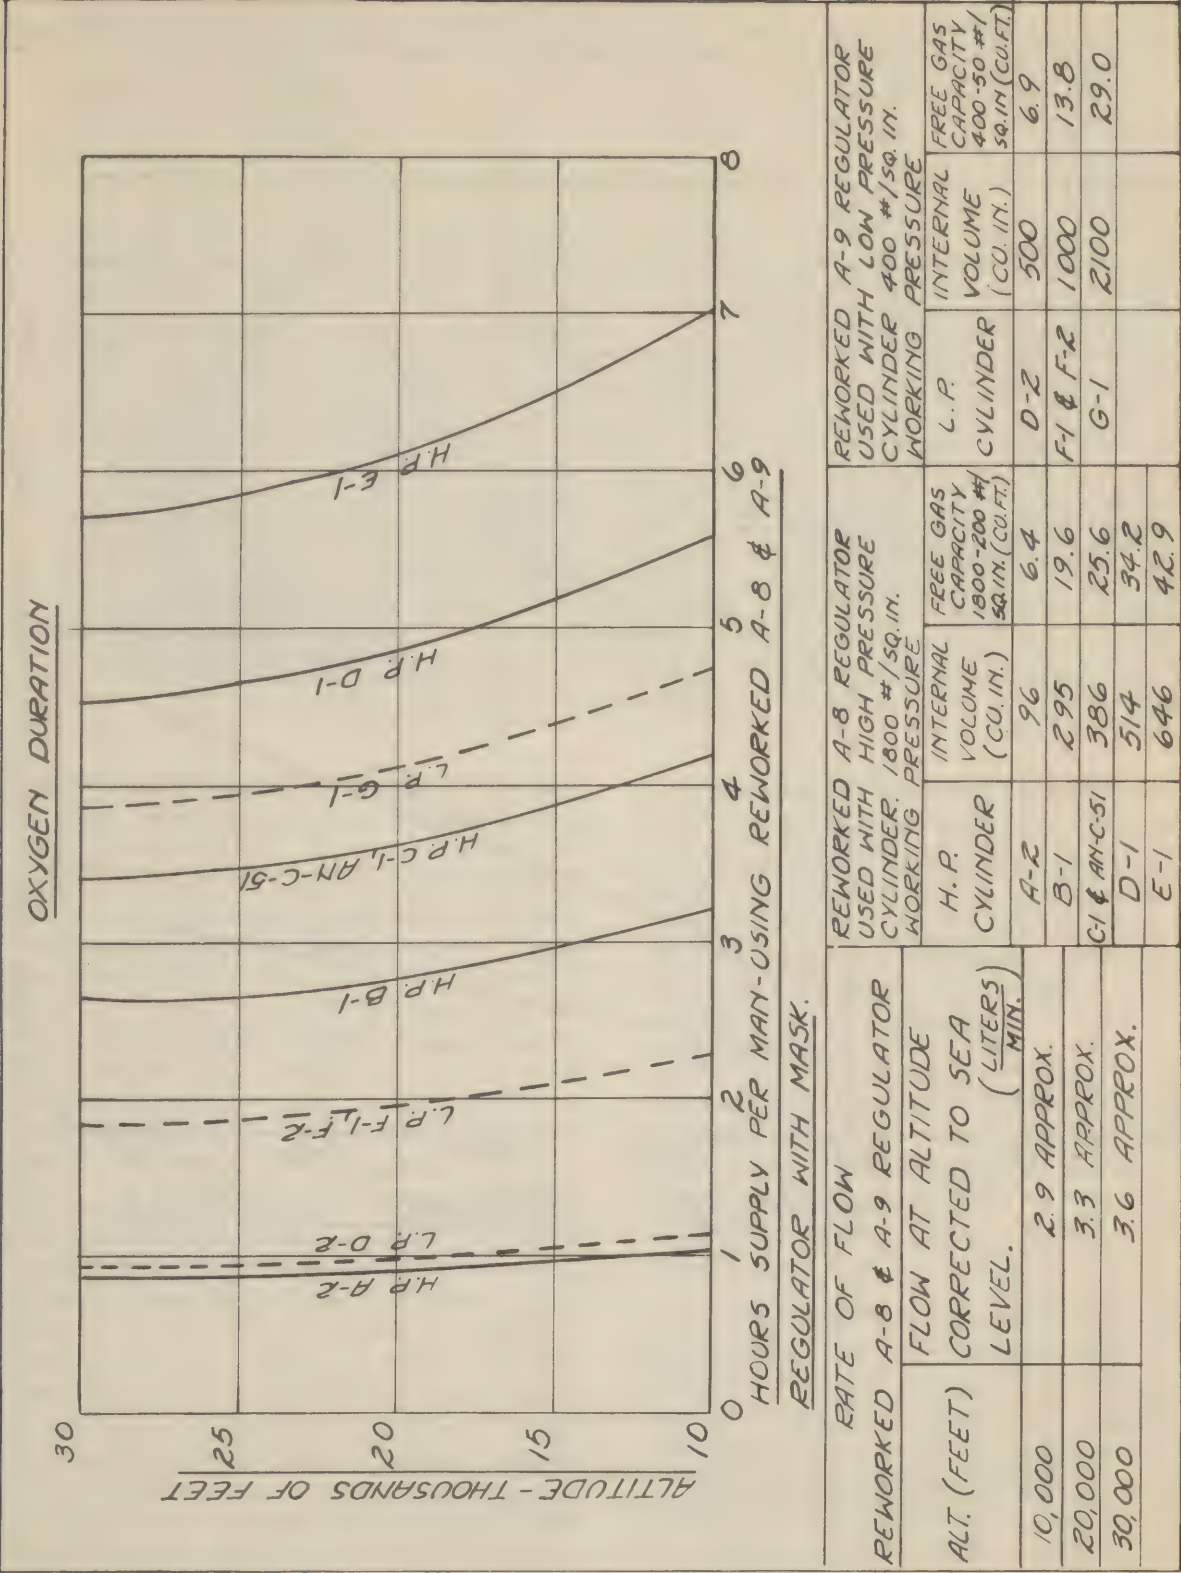 OXYGEN DURATION
ALTITUDE - THOUSANDS OF FEET
30
25
20
15
10
H.P. A-2
L.P. D-2
L.P. F-1, F-2
H.P. B-1
H.P. C-1, AN-C-51
L.P. G-1
H.P. D-1
H.P. E-1
0 1 2 3 4 5 6 7 8
HOURS SUPPLY PER MAN-USING REWORKED A-8 & A-9
REGULATOR WITH MASK.
RATE OF FLOW
REWORKED A-8 & A-9 REGULATOR
ALT. (FEET)
FLOW AT ALTITUDE
CORRECTED TO SEA
LEVEL. (LITERS/MIN.)
10,000 2.9 APPROX.
20,000 3.3 APPROX.
30,000 3.6 APPROX.
REWORKED A-8 REGULATOR
USED WITH HIGH PRESSURE
CYLINDER. 1800 #/SQ.IN.
WORKING PRESSURE
H.P.
CYLINDER
INTERNAL
VOLUME
(CU. IN.)
FREE GAS
CAPACITY
1800-200 #/
SQ.IN. (CU.FT.)
A-2 96 6.4
B-1 295 19.6
C-1 & AN-C-51 386 25.6
D-1 514 34.2
E-1 646 42.9
REWORKED A-9 REGULATOR
USED WITH LOW PRESSURE
CYLINDER 400 #/SQ. IN.
WORKING PRESSURE
L.P.
CYLINDER
INTERNAL
VOLUME
(CU. IN.)
FREE GAS
CAPACITY
400-50 #/
SQ.IN (CU.FT.)
D-2 500 6.9
F-1 & F-2 1000 13.8
G-1 2100 29.0